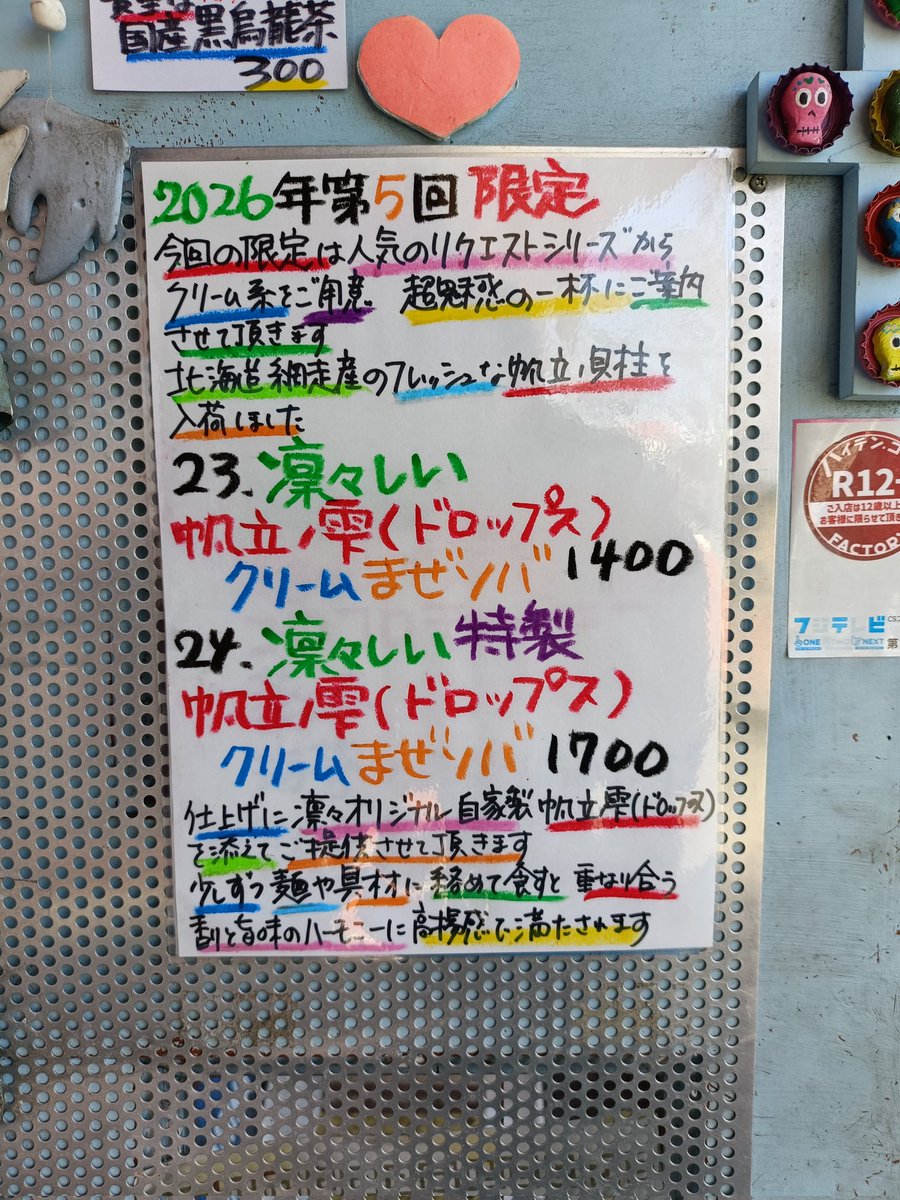 国産黒烏龍茶
300
2026年第5回 限定
今回の限定は人気のリクエストシリーズから
クリーム系をご用意。 超魅惑の一杯にご案内
させて頂きます
北海道網走産のフレッシュな帆立貝柱を
入荷しました
23. 凛々しい
帆立ノ雫(ドロップス)
クリームまぜソバ 1400
24. 凛々しい特製
帆立ノ雫(ドロップス)
クリームまぜソバ 1700
仕上げに凛々オリジナル自家製帆立雫(ドロップス)
を添えてご提供させて頂きます
少しずつ麺や具材に絡めて食すと重なり合う
香りと旨味のハーモニーに高揚感で満たされます
ハイテン.コ
R12+
ご入店は12歳以上
お客様に限らせて頂き
FACTORY
フジテレビ
ONE
NEXT
第